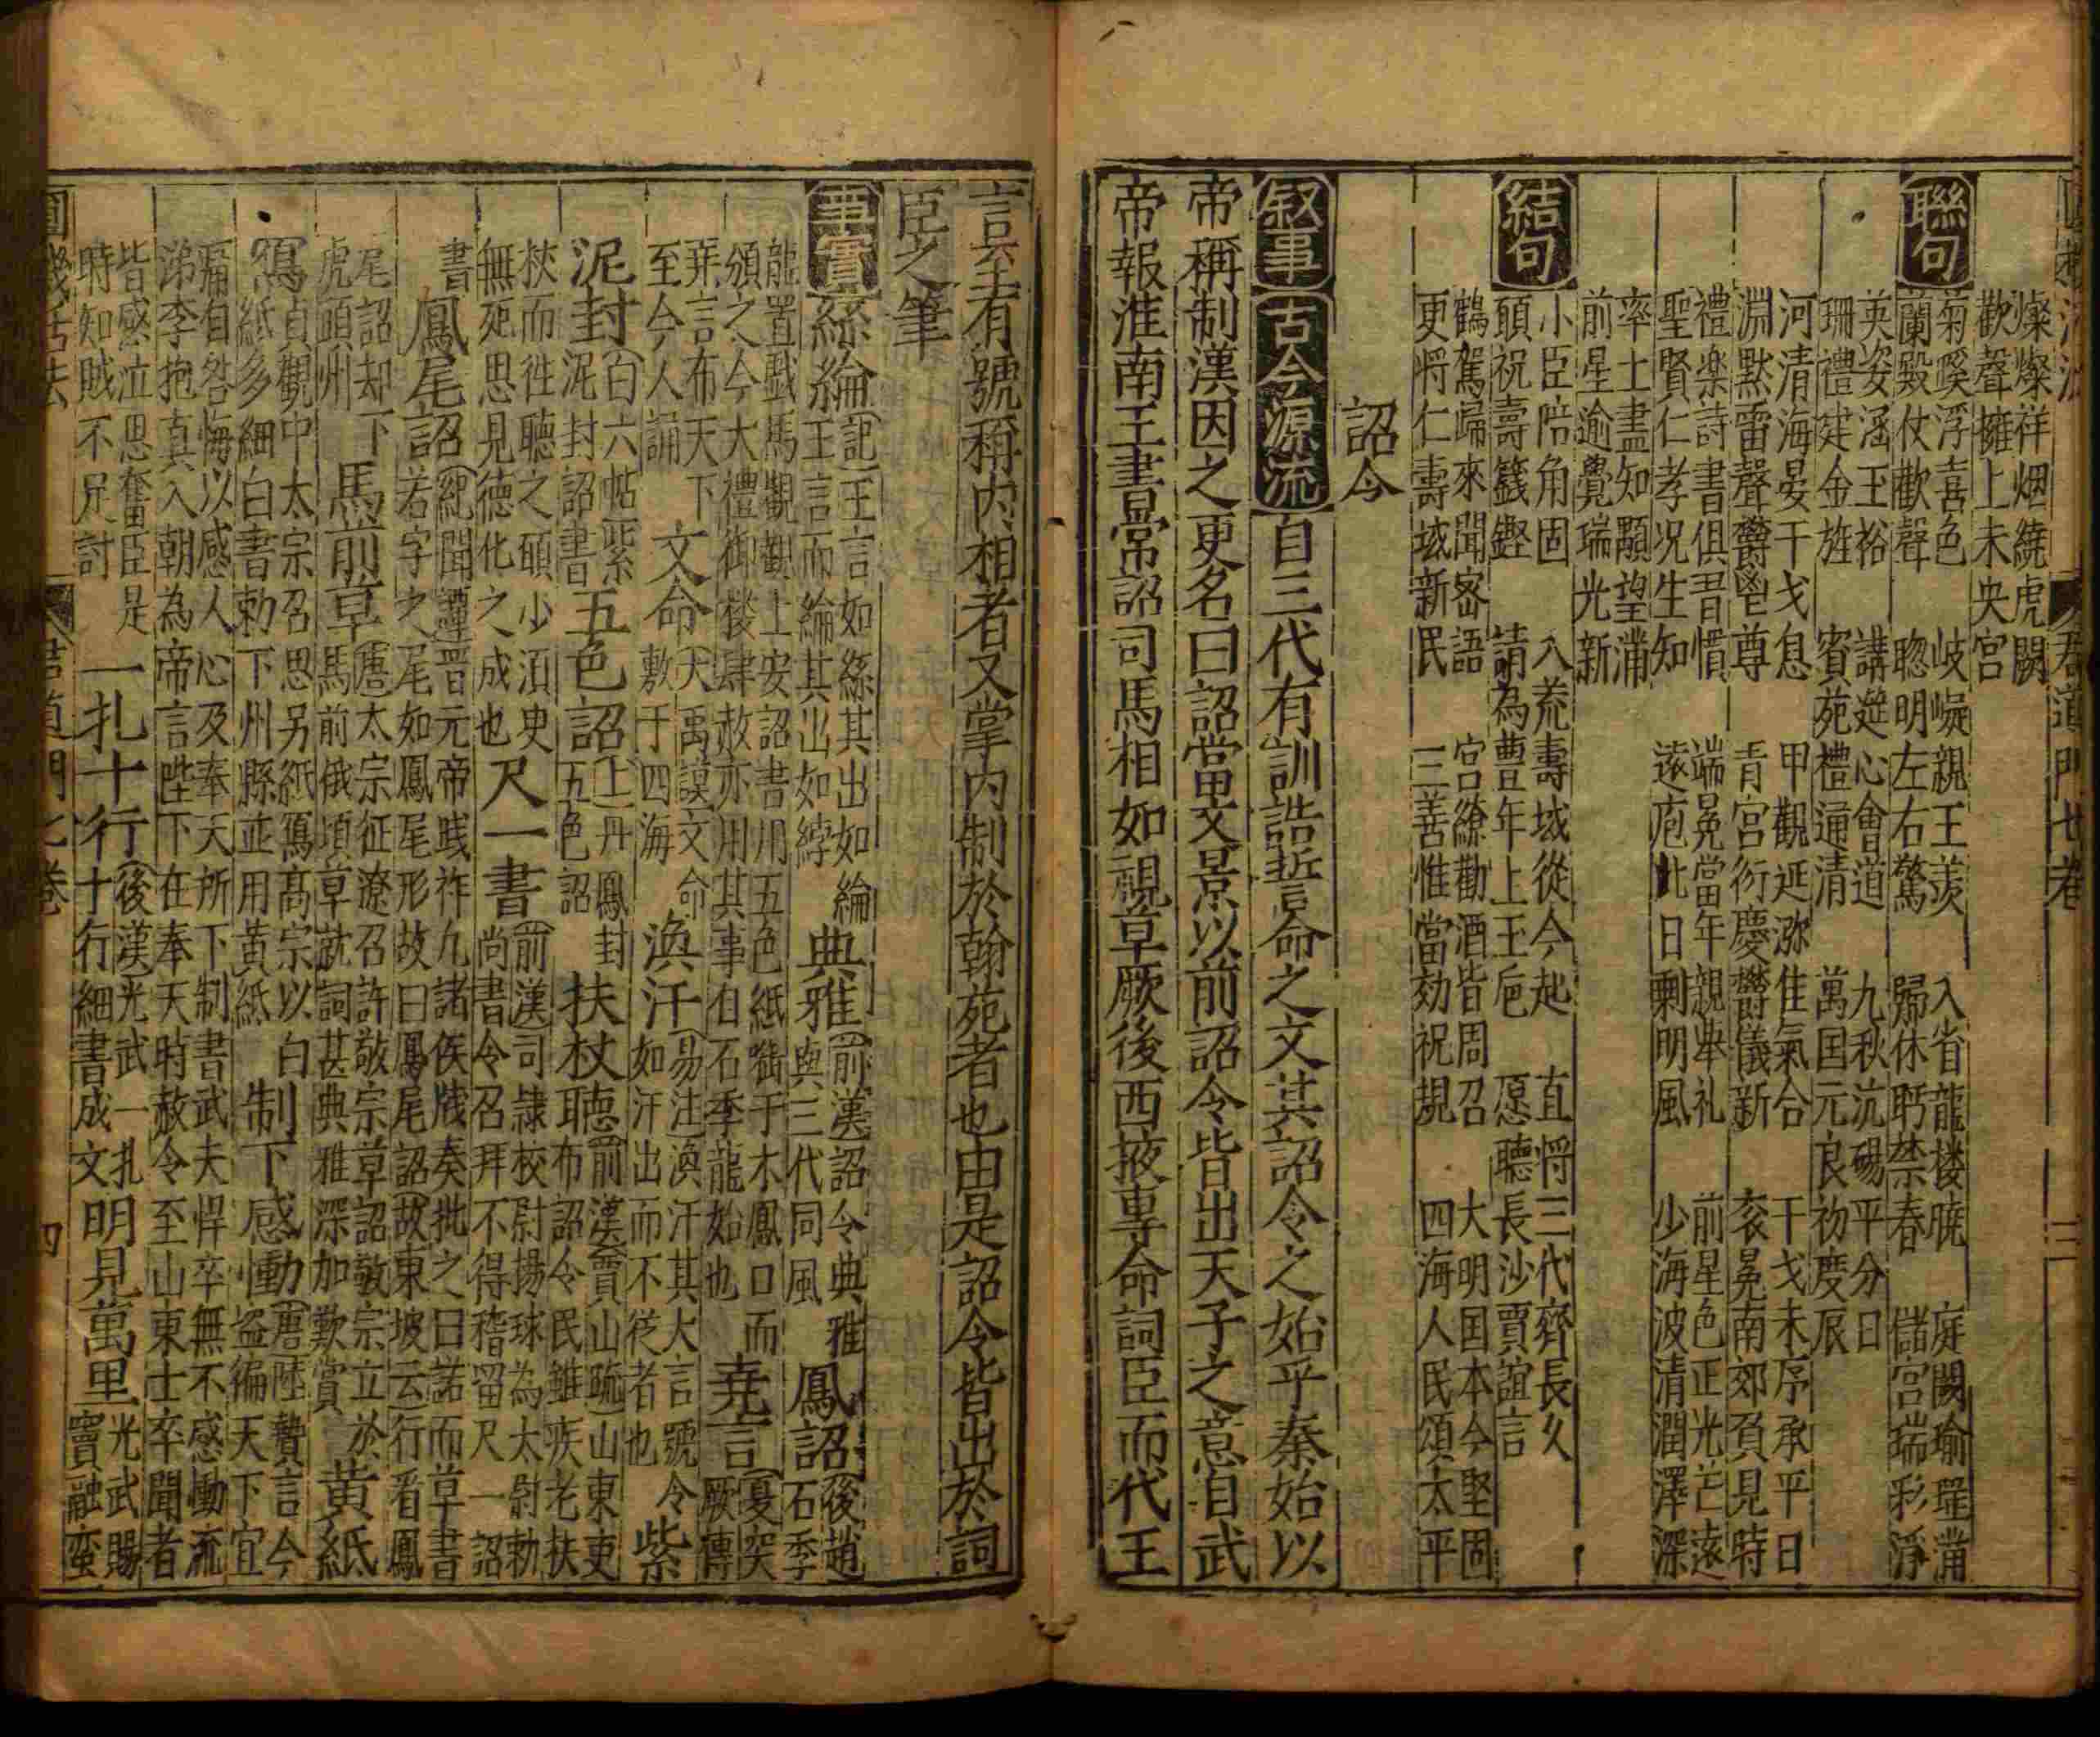 燦燦祥烟繞虎闕
歡聲擁上未央宮
聯句
菊㬋浮喜色　岐嶷親王羡　入省龍楼曉　庭闕瑜珽滿
蘭殿仗歡聲　聰明左右驚　歸休眄禁春　儲宮瑞彩淨
英姿涵玉裕　講筵心會道　九秋沆碭平分日
珊禮建金旌　賓苑禮通清　萬囯元良初度辰
河清海晏干戈息　甲觀延洊佳氣合　干戈未序承平日
淵默雷聲欝鬯尊　青宮衍慶欝儀新　衮冕南郊貟見時
禮楽詩書俱吾慣　端冕當年親举礼　前星色正光芒遠
聖賢仁孝况生知　遠庖此日剰明風　少海波清潤澤深
率土盡知顒望滿
前星逾覺瑞光新
結句
小臣陪角固　入荒壽域從今起　直将三代齊長久
頭祝壽籛鏗　請為豊年上玉巵　愿聽長沙賈誼言
鶴駕歸來聞宻語　宮繚勸酒皆周召　大明囯本今堅固
更将仁壽域新民　三善惟當効祝規　四海人民頌太平
詔令
叙事　古今源流　自三代有訓誥誓命之文其詔令之始乎秦始以
帝稱制漢因之更名曰詔當文景以前詔令皆出天子之意自武
帝報淮南王書常詔司馬相如視草厥後西掖專命詞臣而代王
言去有號稱内相者又掌内制於翰苑者也由是詔令皆出於詞
臣之筆
事實　絲綸　記王言如絲其出如綸　典雅　前漢詔令典雅　鳳詔　後趙
王言而綸其出如綍　與三代同風　石季
龍置戲馬觀觀上安詔書用五色紙㗸于木鳳口而　堯言　夏癸
頒之今大禮御楼肆赦亦用其事自石季龍始也　厥傳
堯言布天下　文命　大禹謨文命　渙汗　易注渙汗其大言號令　紫
至今人誦　敷于四海　如汗出而不從者也
泥封　白六帖紫　五色詔　上丹鳳封　扶杖聴　前漢賈山疏山東吏
泥封詔書　五色詔　布詔令民雖疾老扶
杖而徃聴之頥少湏史　尺一書　前漢司隷校尉揚球為太尉勅
無死思見徳化之成也　尚書令召拜不得稽留尺一詔
書　鳳尾詔　紀聞譚晋元帝践祚九諸侯牋奏批之曰諾而草書
若字之尾如鳳尾形故曰鳳尾詔故東坡云行看鳳
尾詔却下　馬前草　唐太宗征遼召許敬宗草詔敬宗立於　黄紙
虎頭州　馬前俄頃草就詞甚典雅深加歎賞
寫　貞觀中太宗召思另紙寫高宗以白　制下感慟　唐陸贄言今
紙多細白書勅下州縣並用黄紙　盗徧天下宜
痛自咎悔以感人心及奉天所下制書武夫悍卒無不感慟流
涕李抱真入朝為帝言陛下在奉天時赦令至山東士卒聞者
皆感泣思奮臣是　一札十行　後漢光武一扎　明見萬里　光武賜
時知賊不足討　十行細書成文　竇融蛮